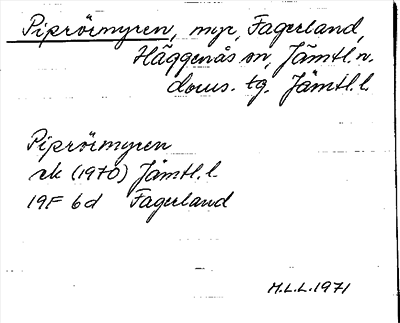 Piprörmyren, myr, Fagerland,
Häggenås sn, Jämtl. n.
doms. tg. Jämtl. l.
Piprörmyren
rk (1970) Jämtl. l.
19F 6d Fagerland
M.L.L. 1971